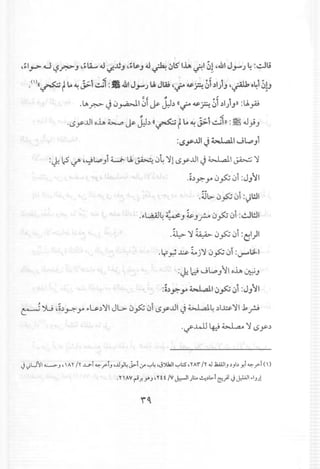 قالت: يا رسول الله، إنّ ابني هذا كان بطني له وعاءً، وثديي له سقاءً، وحجري لـه حـواءً،
وإنّ أباه طلقني، وأراد أنْ ينتزعه مني، فقال لها رسول الله ﷺ: أنْتِ أحَقّ به ما لم تنكحي»(١).
فقولها: «وأراد أنْ ينتزعه مني» دليلٌ على أنّ المحضون في حجرها.
وقوله ﷺ: «أنْتِ أحَقّ به ما لم تنكحي» دليلٌ على صحة هذه الدعوى.
أوصاف المصلحة في الدعوى:
لا تتحقق المصلحة في الدعوى إلا بأن يتحقق لها خمسة أوصافٍ، هي كما يلي:
الأول: أن تكون موجودةً.
الثاني: أن تكون حالّةً.
الثالث: أن تكون مشروعةً ومحميّةً بالقضاء.
الرابع: أن تكون حقيقةً لا حيلةً.
الخامس: أن تكون لازمةً عند ثبوتها.
ونبين هذه الأوصاف فيما يلي:
الأول: أن تكون المصلحة موجودةً:
فشرط الاعتداد بالمصلحة في الدعوى أن تكون حال الادعاء موجودةً، فـلا تُسـمع
دعوى لا مصلحة فيها للمدعي.
(١) أخرجه أبو داود واللفظ له ٢/ ٢٨٣، كتاب الطلاق، باب من أحق بالولد، وأخرجه أحمد ٢/ ١٨٢، وحسنه الألباني في
إرواء الغليل في تخريج أحاديث منار السبيل ٧/ ٢٤٤، وهو برقم ٢١٨٧.
٣٩